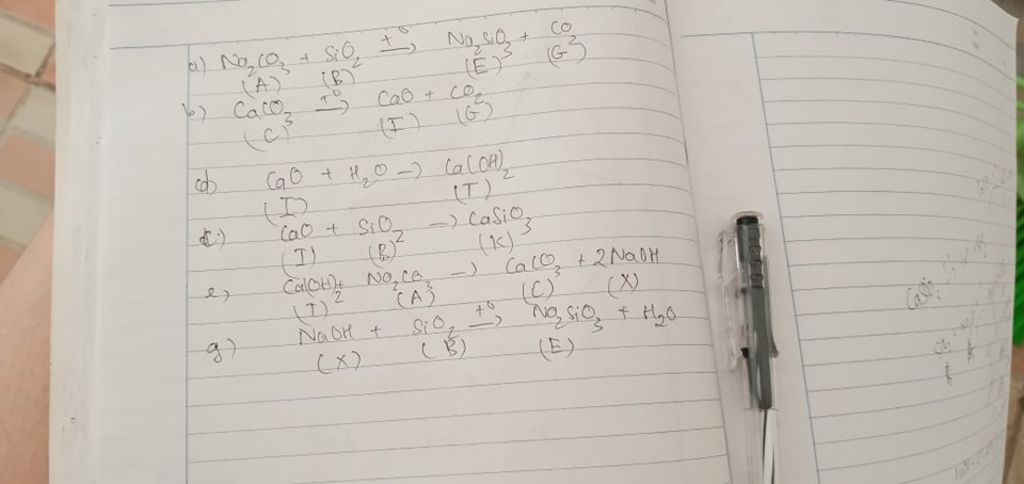 a) Na₂CO₃ + SiO₂ t° → Na₂SiO₃ + CO₂
(A) (B) (E) (G)
b) CaCO₃ t° → CaO + CO₂
(C) (I) (G)
d) CaO + H₂O → Ca(OH)₂
(I) (T)
c) CaO + SiO₂ → CaSiO₃
(I) (B) (K)
e) Ca(OH)₂ + Na₂CO₃ → CaCO₃ + 2NaOH
(T) (A) (C) (X)
g) NaOH + SiO₂ t° → Na₂SiO₃ + H₂O
(X) (B) (E)